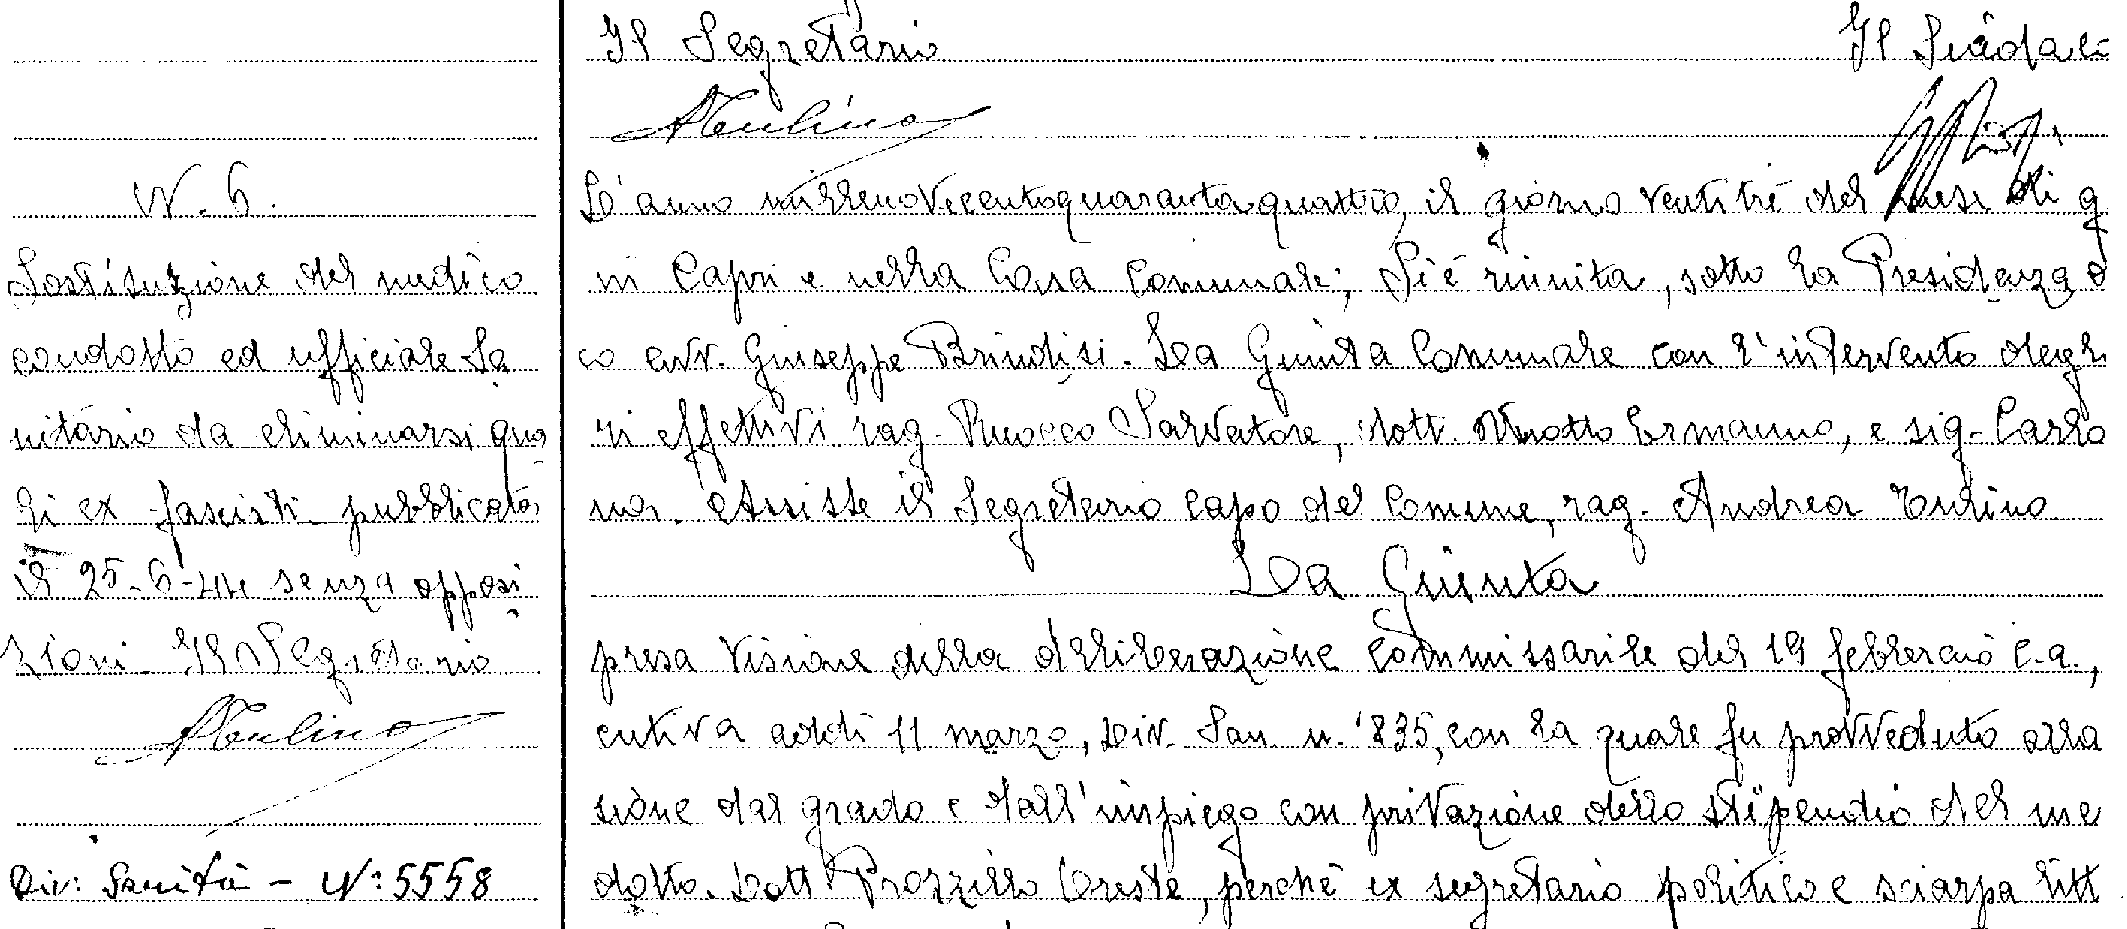 Il Segretario
Il Sindaco
AEntino
N. 6.
Sostituzione del medico
condotto ed ufficiale Sa
nitario da eliminarsi qua
li ex fascisti pubblicata
il 25-6-44 senza opposi
zioni Il Segretario
Div: Sanità - N: 5558
L'anno millenovecentoquarantaquattro, il giorno ventitrè del mese di g
in Capri e nella Casa Comunale, si è riunita, sotto la Presidenza d
co avv. Giuseppe Brindisi. La Giunta Comunale con l'intervento degli
ri effettivi rag. Ruocco Salvatore, dott. Ermanno, e sig. Carlo
na. Assiste il Segretario Capo del Comune, rag. Andrea
La Giunta
presa visione della deliberazione Commissarile del 19 febbraio c.a.,
cutiva addì 11 marzo, Div. San. n. 835, con la quale fu provveduto alla
sione dal grado e dall'impiego con privazione dello stipendio del me
dotto. Dott. Prozzillo Oreste, perchè ex segretario politico e sciarpa litt